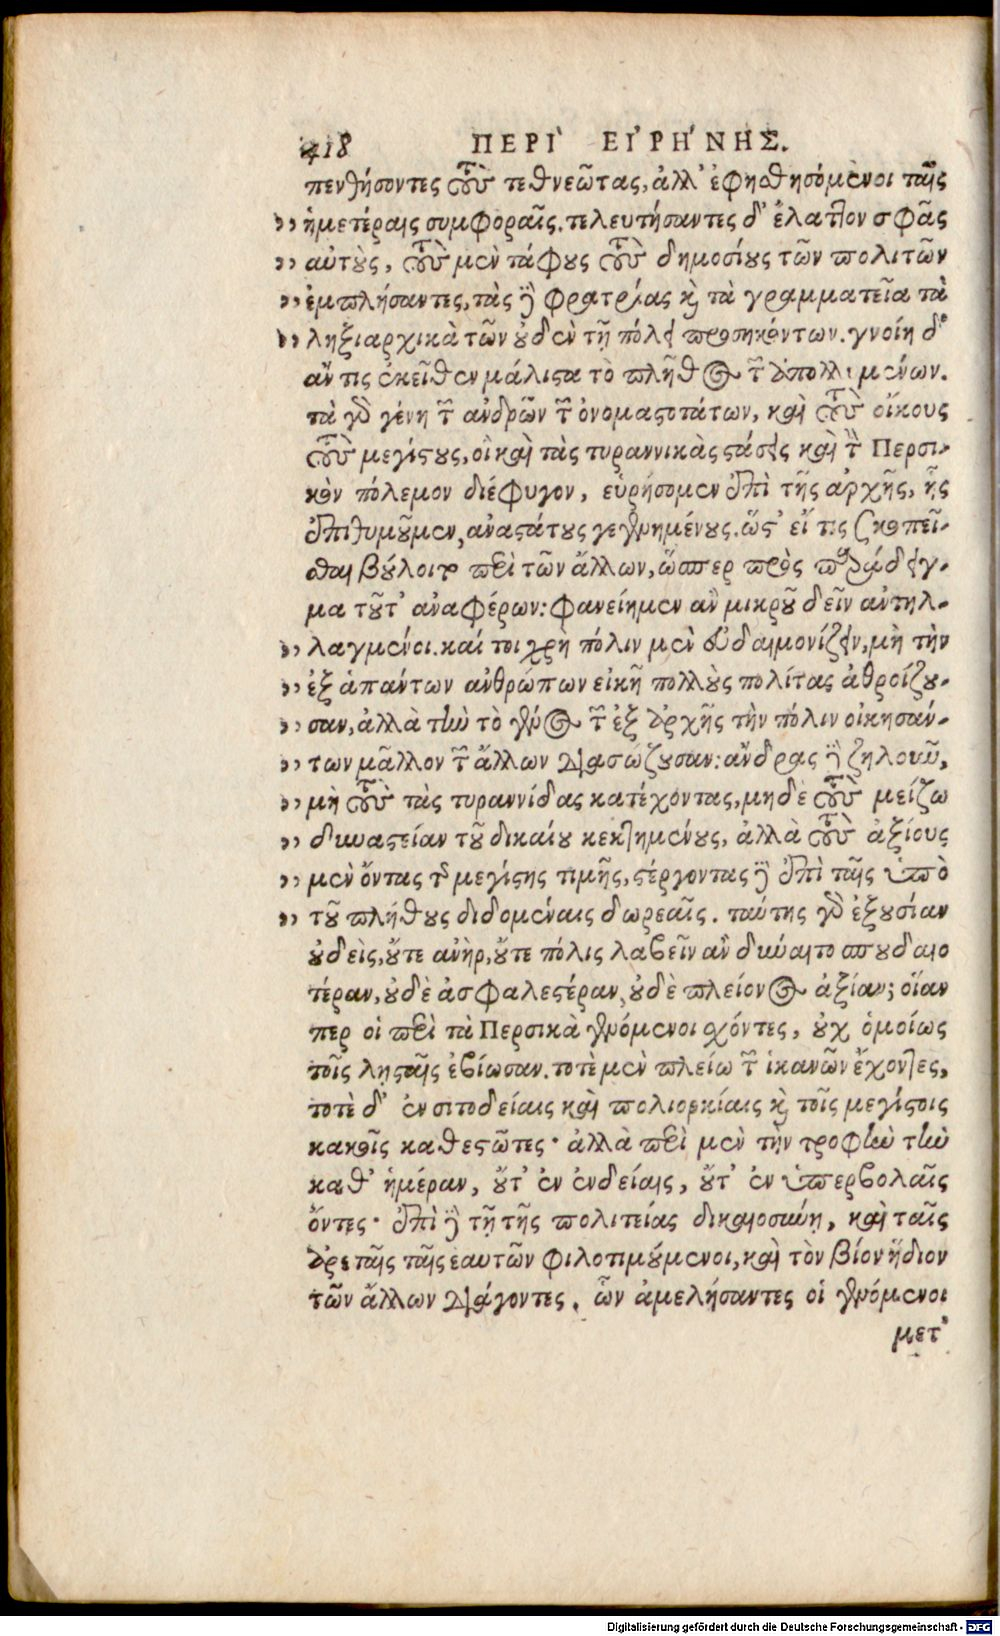 418 ΠΕΡῚ ΕἸΡΉΝΗΣ.
πενθήσοντες τοὺς τεθνεῶτας, ἀλλ' ἐφησθησόμενοι ταῖς
,, ἡμετέραις συμφοραῖς. τελευτήσαντες δ' ἔλαττον σφᾶς
,, αὐτοὺς, τοὺς μὲν τάφους τοὺς δημοσίους τῶν πολιτῶν
,, ἐμπλήσαντες, τὰς δὲ φρατρίας καὶ τὰ γραμματεῖα τὰ
,, ληξιαρχικὰ τῶν οὐδὲν τῇ πόλει προσηκόντων. γνοίη δ'
ἄν τις ἐκεῖθεν μάλιστα τὸ πλῆθος τῶν ἀπολλυμένων.
τὰ γὰρ γένη τῶν ἀνδρῶν τῶν ὀνομαστοτάτων, καὶ τοὺς οἴκους
τοὺς μεγίστους, οἳ καὶ τὰς τυραννικὰς στάσεις καὶ τὸν Περσι-
κὸν πόλεμον διέφυγον, εὑρήσομεν ἐπὶ τῆς ἀρχῆς, ἧς
ἐπιθυμοῦμεν, ἀναστάτους γεγενημένους. ὥστ' εἴ τις σκοπεῖ-
σθαι βούλοιτο περὶ τῶν ἄλλων, ὥσπερ πρὸς παράδειγ-
μα τοῦτ' ἀναφέρων: φανείημεν ἂν μικροῦ δεῖν ἀντηλ-
,, λαγμένοι. καί τοι χρὴ πόλιν μὲν εὐδαιμονίζειν, μὴ τὴν
,, ἐξ ἁπάντων ἀνθρώπων εἰκῆ πολλοὺς πολίτας ἀθροίζου-
,, σαν, ἀλλὰ τὴν τὸ γένος τῶν ἐξ ἀρχῆς τὴν πόλιν οἰκησάν-
,, των μᾶλλον τῶν ἄλλων διασώζουσαν: ἄνδρας δὲ ζηλοῦν,
,, μὴ τοὺς τὰς τυραννίδας κατέχοντας, μηδὲ τοὺς μείζω
,, δυναστείαν τοῦ δικαίου κεκτημένους, ἀλλὰ τοὺς ἀξίους
,, μὲν ὄντας τῆς μεγίστης τιμῆς, στέργοντας δὲ ἐπὶ ταῖς ὑπὸ
,, τοῦ πλήθους διδομέναις δωρεαῖς. ταύτης γὰρ ἐξουσίαν
οὐδεὶς, οὔτε ἀνὴρ, οὔτε πόλις λαβεῖν ἂν δύναιτο σπουδαιο
τέραν, οὐδὲ ἀσφαλεστέραν, οὐδὲ πλείονος ἀξίαν; οἵαν
περ οἱ περὶ τὰ Περσικὰ γενόμενοι σχόντες, οὐχ ὁμοίως
τοῖς λῃσταῖς ἐβίωσαν. τοτὲ μὲν πλείω τῶν ἱκανῶν ἔχοντες,
τοτὲ δ' ἐν σιτοδείαις καὶ πολιορκίαις καὶ τοῖς μεγίστοις
κακοῖς καθεστῶτες· ἀλλὰ περὶ μὲν τὴν τροφὴν τὴν
καθ' ἡμέραν, οὔτ' ἐν ἐνδείαις, οὔτ' ἐν ὑπερβολαῖς
ὄντες· ἐπὶ δὲ τῇ τῆς πολιτείας δικαιοσύνῃ, καὶ ταῖς
ἀρεταῖς ταῖς ἑαυτῶν φιλοτιμούμενοι, καὶ τὸν βίον ἥδιον
τῶν ἄλλων διάγοντες. ὧν ἀμελήσαντες οἱ γενόμενοι
μετ'
Digitalisierung gefördert durch die Deutsche Forschungsgemeinschaft - DFG